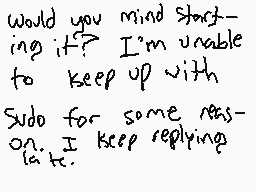 would you mind start-
ing it? I'm unable
to keep up with
sudo for some reas-
on. I keep replying
late.